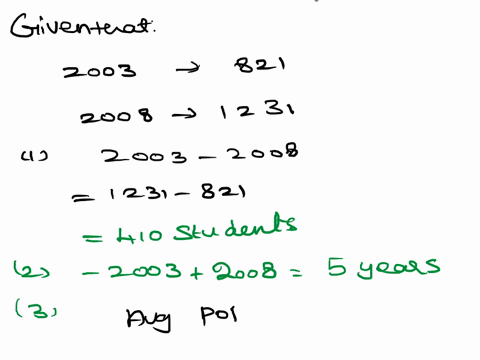 Given that:
2003 → 821
2008 → 1231
(1) 2003 - 2008
= 1231 - 821
= 410 Students
(2) - 2003 + 2008 = 5 years
(3) Avg Pop